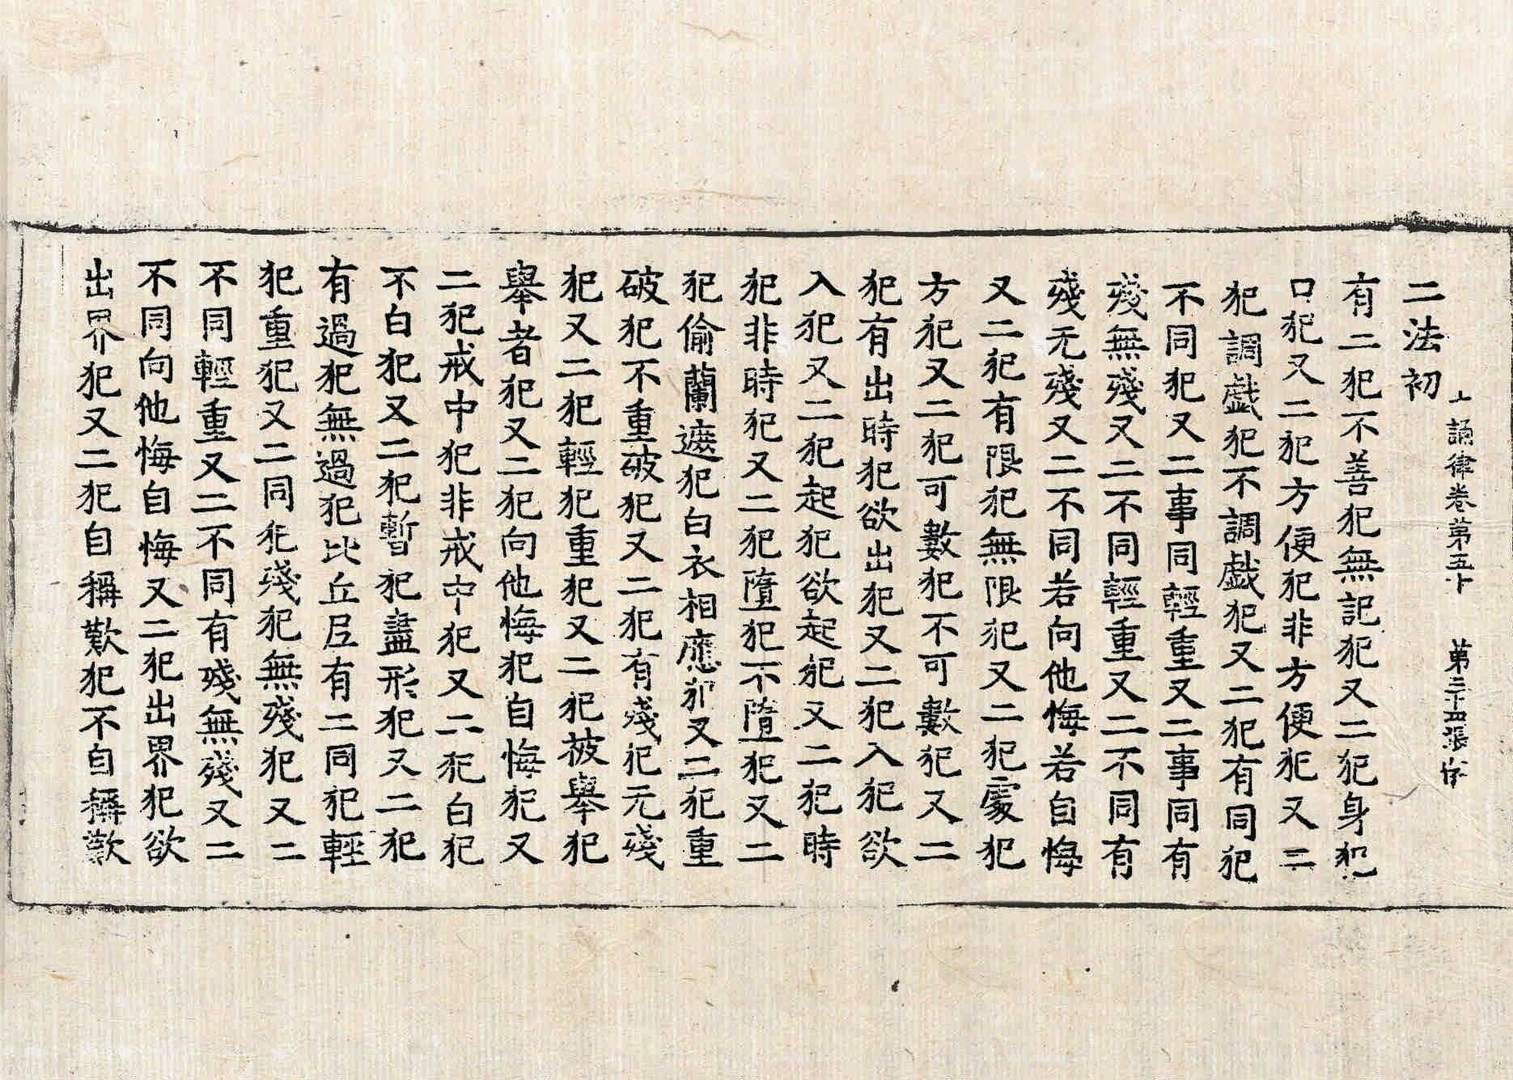 二法初
誦律卷第五十 第二十四張
有二犯不善犯無記犯又二犯身犯
口犯又二犯方便犯非方便犯又二
犯調戯犯不調戯犯又二犯有同犯
不同犯又二事同輕重又二事同有
殘無殘又二不同輕重又二不同有
殘无殘又二不同若向他悔若自悔
又二犯有限犯無限犯又二犯處犯
方犯又二犯可數犯不可數犯又二
犯有出時犯欲出犯又二犯入犯欲
入犯又二犯起犯欲起犯又二犯時
犯非時犯又二犯墮犯不墮犯又二
犯偷蘭遮犯白衣相應犯又二犯重
破犯不重破犯又二犯有殘犯无殘
犯又二犯輕犯重犯又二犯被舉犯
舉者犯又二犯向他悔犯自悔犯又
二犯戒中犯非戒中犯又二犯白犯
不白犯又二犯暫犯盡形犯又二犯
有過犯無過犯比丘尼有二同犯輕
犯重犯又二同犯殘犯無殘犯又二
不同輕重又二不同有殘無殘又二
不同向他悔自悔又二犯出界犯欲
出界犯又二犯自稱歎犯不自稱歎